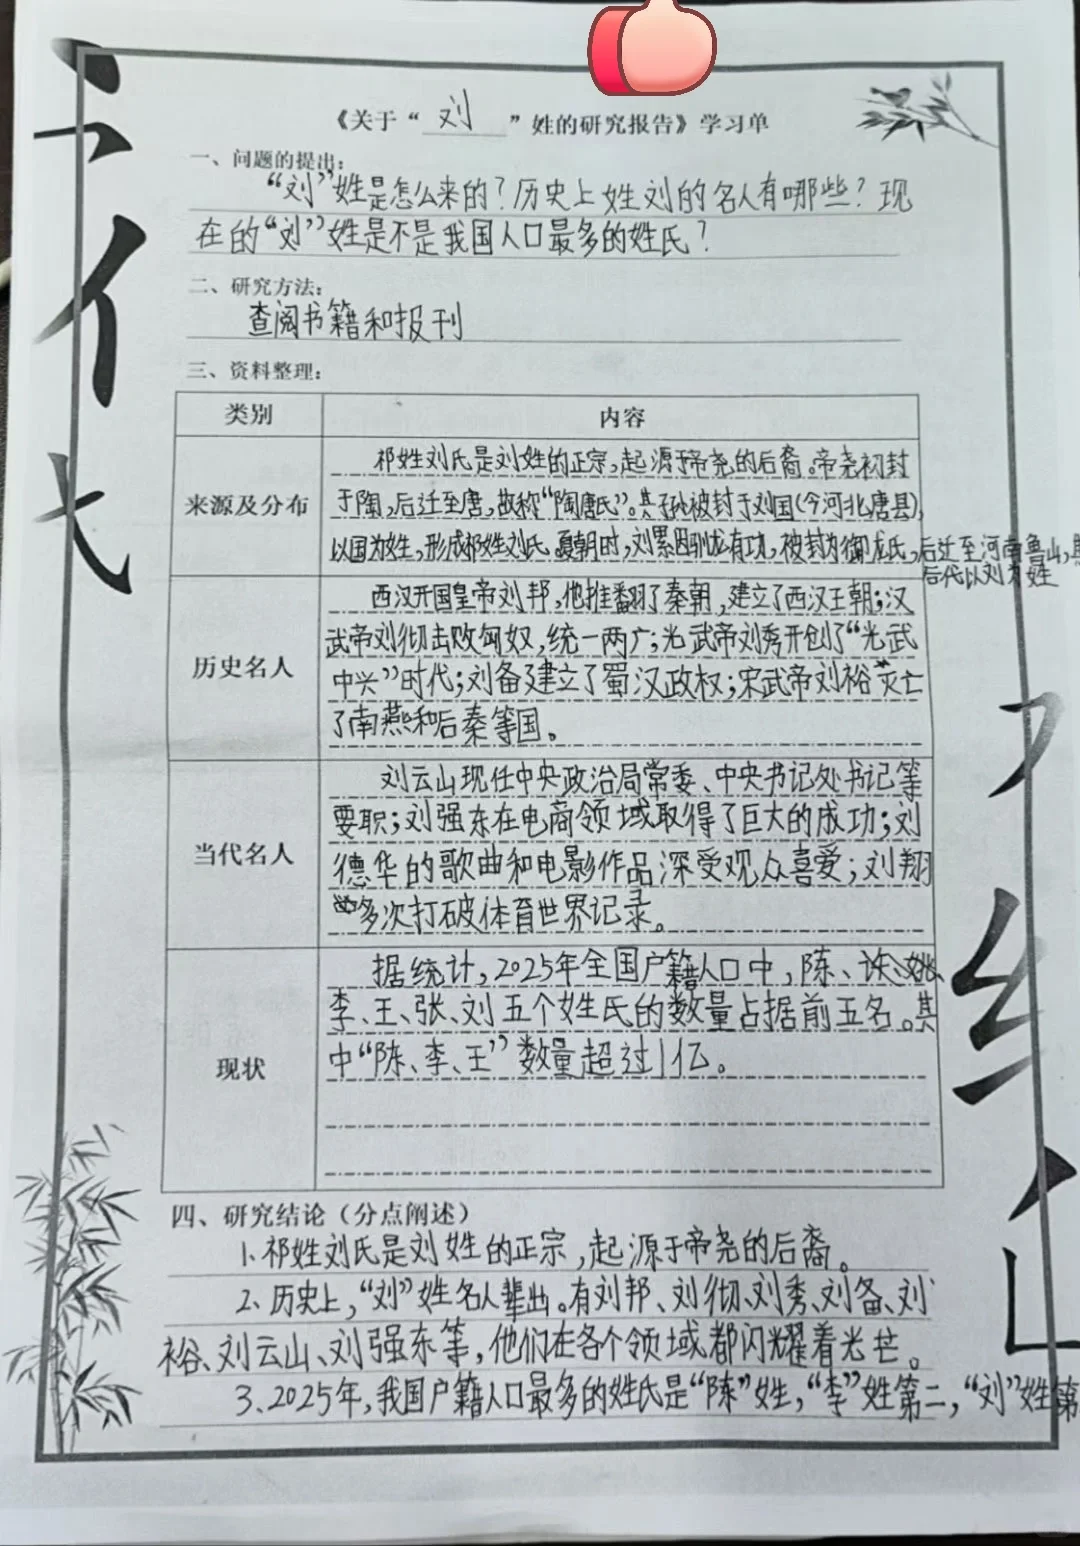 《关于“刘”姓的研究报告》学习单
一、问题的提出:
“刘”姓是怎么来的?历史上姓刘的名人有哪些?现
在的“刘”姓是不是我国人口最多的姓氏?
二、研究方法:
查阅书籍和报刊
三、资料整理:
类别
内容
来源及分布
祁姓刘氏是刘姓的正宗,起源于帝尧的后裔。帝尧初封
于陶,后迁至唐,故称“陶唐氏”。其子孙被封于刘国(今河北唐县),
以国为姓,形成祁姓刘氏。夏朝时,刘累因驯龙有功,被封为御龙氏,后迁至河南鲁山,其
后代以刘为姓
历史名人
西汉开国皇帝刘邦,他推翻了秦朝,建立了西汉王朝;汉
武帝刘彻击败匈奴,统一两广;光武帝刘秀开创了“光武
中兴”时代;刘备建立了蜀汉政权;宋武帝刘裕灭亡
了南燕和后秦等国。
当代名人
刘云山现任中央政治局常委、中央书记处书记等
要职;刘强东在电商领域取得了巨大的成功;刘
德华的歌曲和电影作品深受观众喜爱;刘翔
多次打破体育世界记录。
现状
据统计,2025年全国户籍人口中,陈、
李、王、张、刘五个姓氏的数量占据前五名。其
中“陈、李、王”数量超过1亿。
四、研究结论(分点阐述)
1.祁姓刘氏是刘姓的正宗,起源于帝尧的后裔。
2、历史上,“刘”姓名人辈出。有刘邦、刘彻、刘秀、刘备、刘
裕、刘云山、刘强东等,他们在各个领域都闪耀着光芒。
3、2025年,我国户籍人口最多的姓氏是“陈”姓,“李”姓第二,“刘”姓第